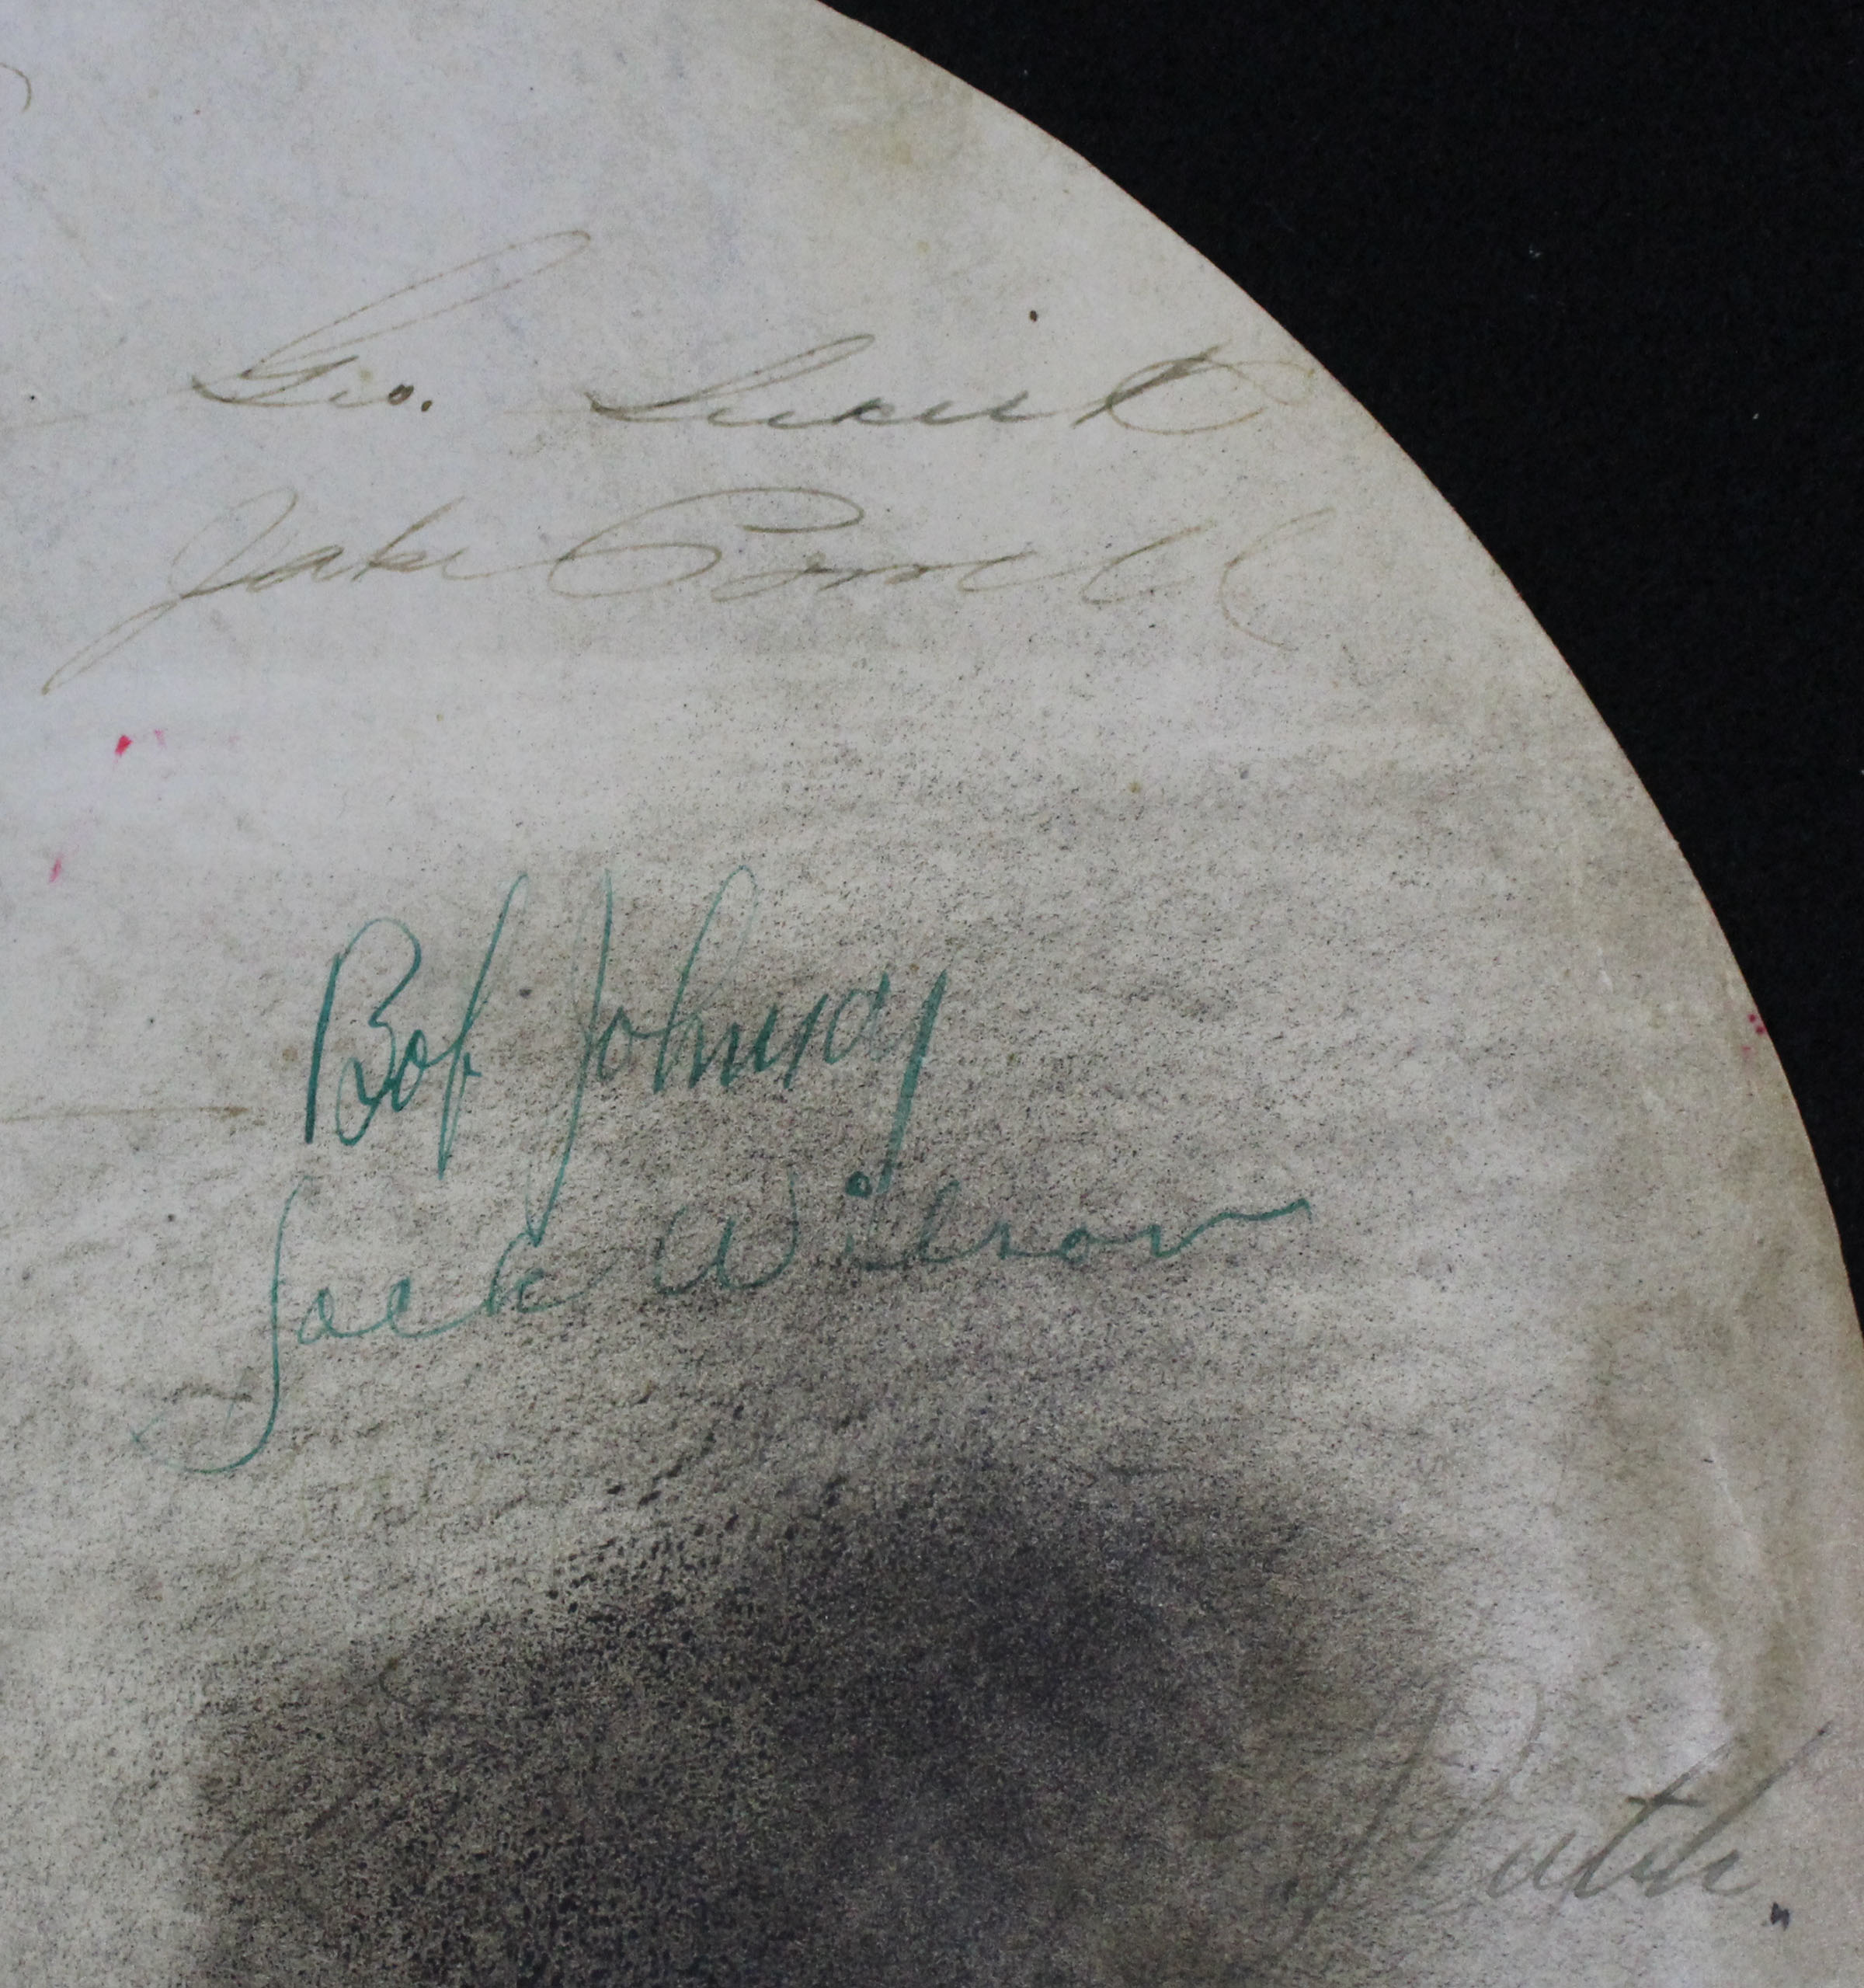 Geo. Susckt
Jake Powell
Bob Johnson
Jack Wilson
Ruth